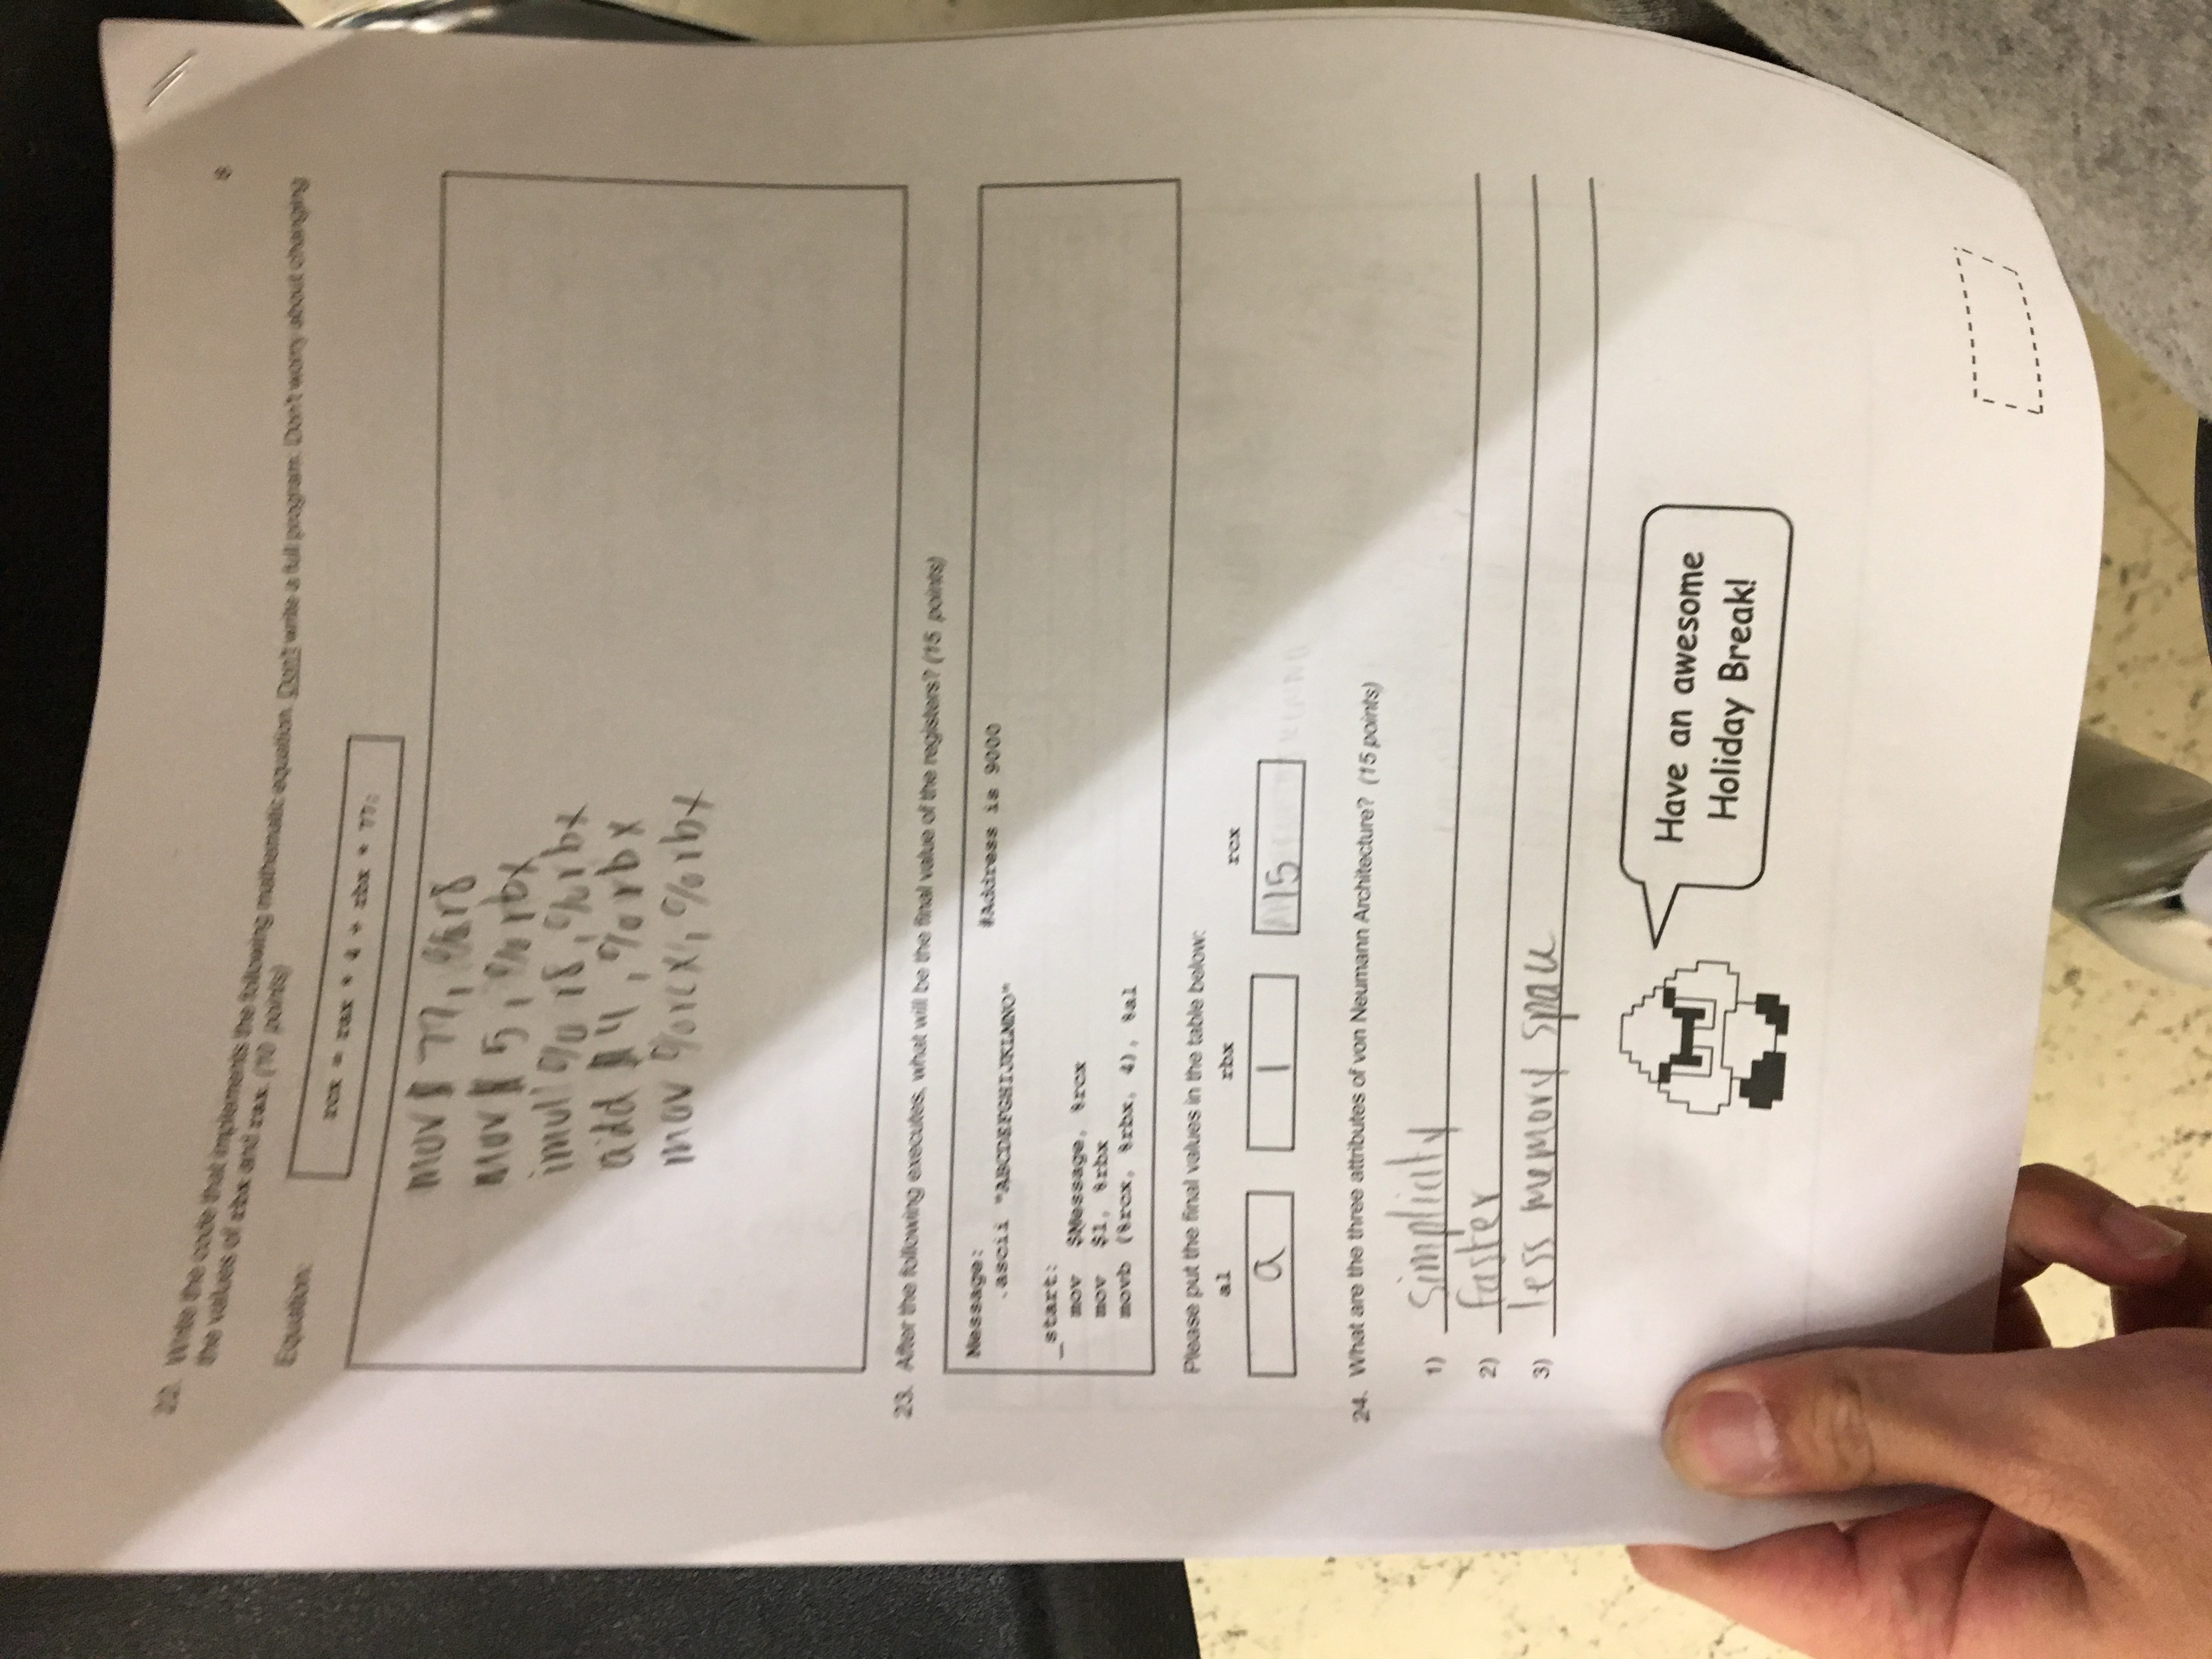 8
22. Write the code that implements the following mathematic equation. Don't write a full program. Don't worry about changing
the values of rbx and rax. (10 points)
Equation:
rcx = rax * 4 + rbx * 77;
mov $ 77, %r8
mov $ 5, %rbx
imull %r8, %rbx
add $4, %rbx
mov %rcx, %rbx
23. After the following executes, what will be the final value of the registers? (15 points)
Message: #Address is 9000
.ascii "ABCDEFGHIJKLMNO"
_start:
mov $Message, %rcx
mov $1, %rbx
movb (%rcx, %rbx, 4), %al
Please put the final values in the table below:
al rbx rcx
a 1 15
24. What are the three attributes of von Neumann Architecture? (15 points)
1) simplicity
2) faster
3) less memory space
Have an awesome
Holiday Break!